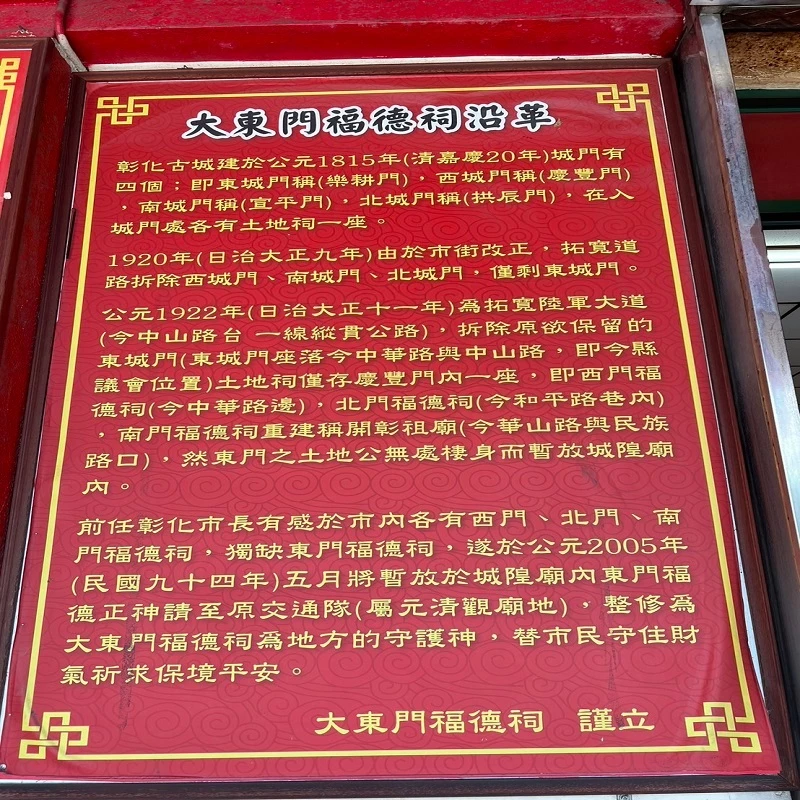 大東門福德祠沿革
彰化古城建於公元1815年(清嘉慶20年)城門有
四個；即東城門稱(樂耕門)，西城門稱(慶豐門)
，南城門稱(宣平門)，北城門稱(拱辰門)，在入
城門處各有土地祠一座。
1920年(日治大正九年)由於市街改正，拓寬道
路拆除西城門、南城門、北城門，僅剩東城門。
公元1922年(日治大正十一年)為拓寬陸軍大道
(今中山路台 一線縱貫公路)，拆除原欲保留的
東城門(東城門座落今中華路與中山路，即今縣
議會位置)土地祠僅存慶豐門內一座，即西門福
德祠(今中華路邊)，北門福德祠(今和平路巷內)
，南門福德祠重建稱開彰祖廟(今華山路與民族
路口)，然東門之土地公無處棲身而暫放城隍廟
內。
前任彰化市長有感於市內各有西門、北門、南
門福德祠，獨缺東門福德祠，遂於公元2005年
(民國九十四年)五月將暫放於城隍廟內東門福
德正神請至原交通隊(屬元清觀廟地)，整修為
大東門福德祠為地方的守護神，替市民守住財
氣祈求保境平安。
大東門福德祠 謹立